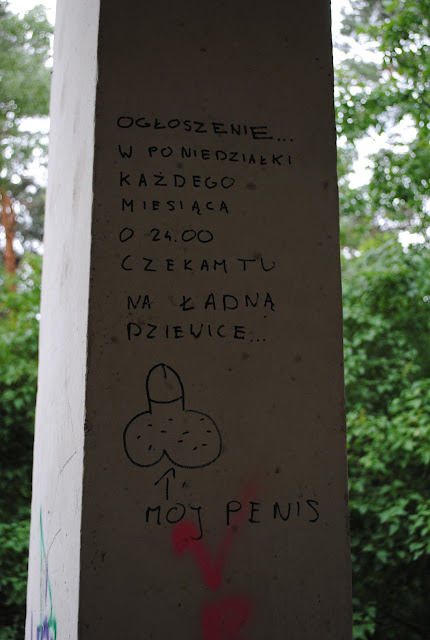 OGŁOSZENIE...
W PONIEDZIAŁKI
KAŻDEGO
MIESIĄCA
O 24.00
CZEKAM TU
NA ŁADNĄ
DZIEWICE...
MOJ PENIS